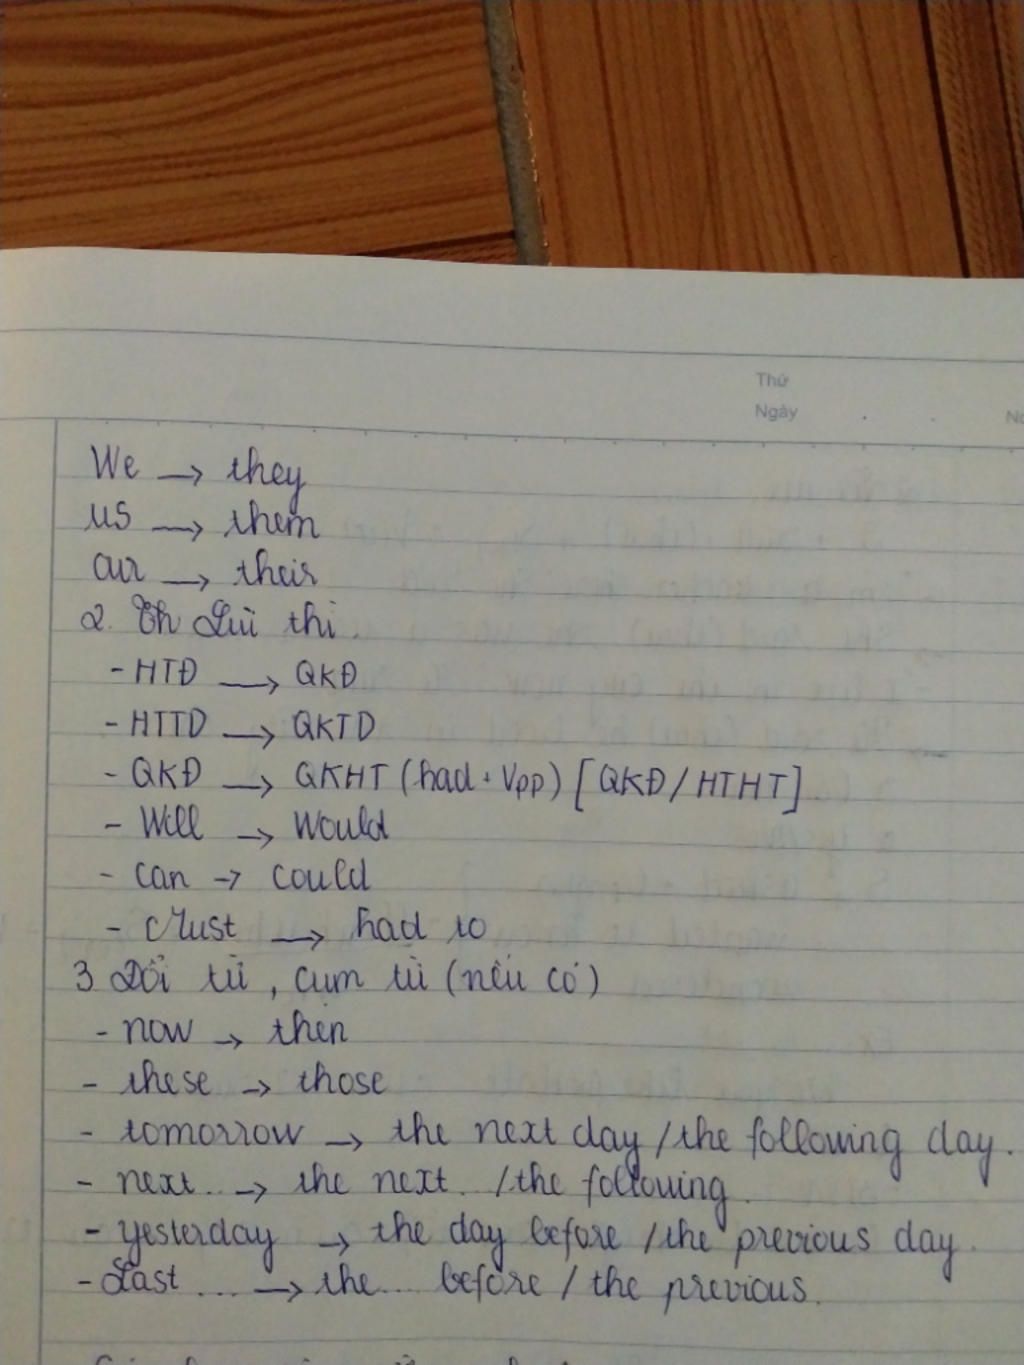 Thứ
Ngày
No
We → they
us → them
our → their
2. Lùi thì
- HTĐ → QKĐ
- HTTD → QKTD
- QKĐ → QKHT (had + Vpp) [QKĐ/HTHT]
- Will → Would
- can → could
- Must → had to
3 Đổi từ, cụm từ (nếu có)
- now → then
- these → those
- tomorrow → the next day / the following day.
- next... → the next... / the following.
- yesterday → the day before / the previous day.
- Last .... → the.... before / the previous.